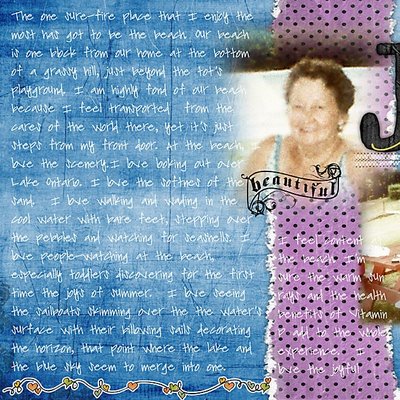 The one sure-fire place that I enjoy the
most has got to be the beach. Our beach
is one block from our home at the bottom
of a grassy hill, just beyond the tot's
playground. I am highly fond of our beach
because I feel transported from the
cares of the world there, yet it's just
steps from my front door. At the beach, I
love the scenery. I love looking out over
Lake Ontario. I love the softnes of the
sand. I love walking and wading in the
cool water with bare feet, stepping over
the pebbles and watching for seashells. I
love people-watching at the beach,
especially toddlers discovering for the first
time the joys of summer. I love seeing
the sailboats skimming over the the water's
surface with their billowing sails decorating
the horizon, that point where the lake and
the blue sky seem to merge into one.
beautiful
J
I feel content
the beach. I'm
sure the warm sun
rays and the health
benefits of Vitamin
D add to the whole
experience. I
love the joyful